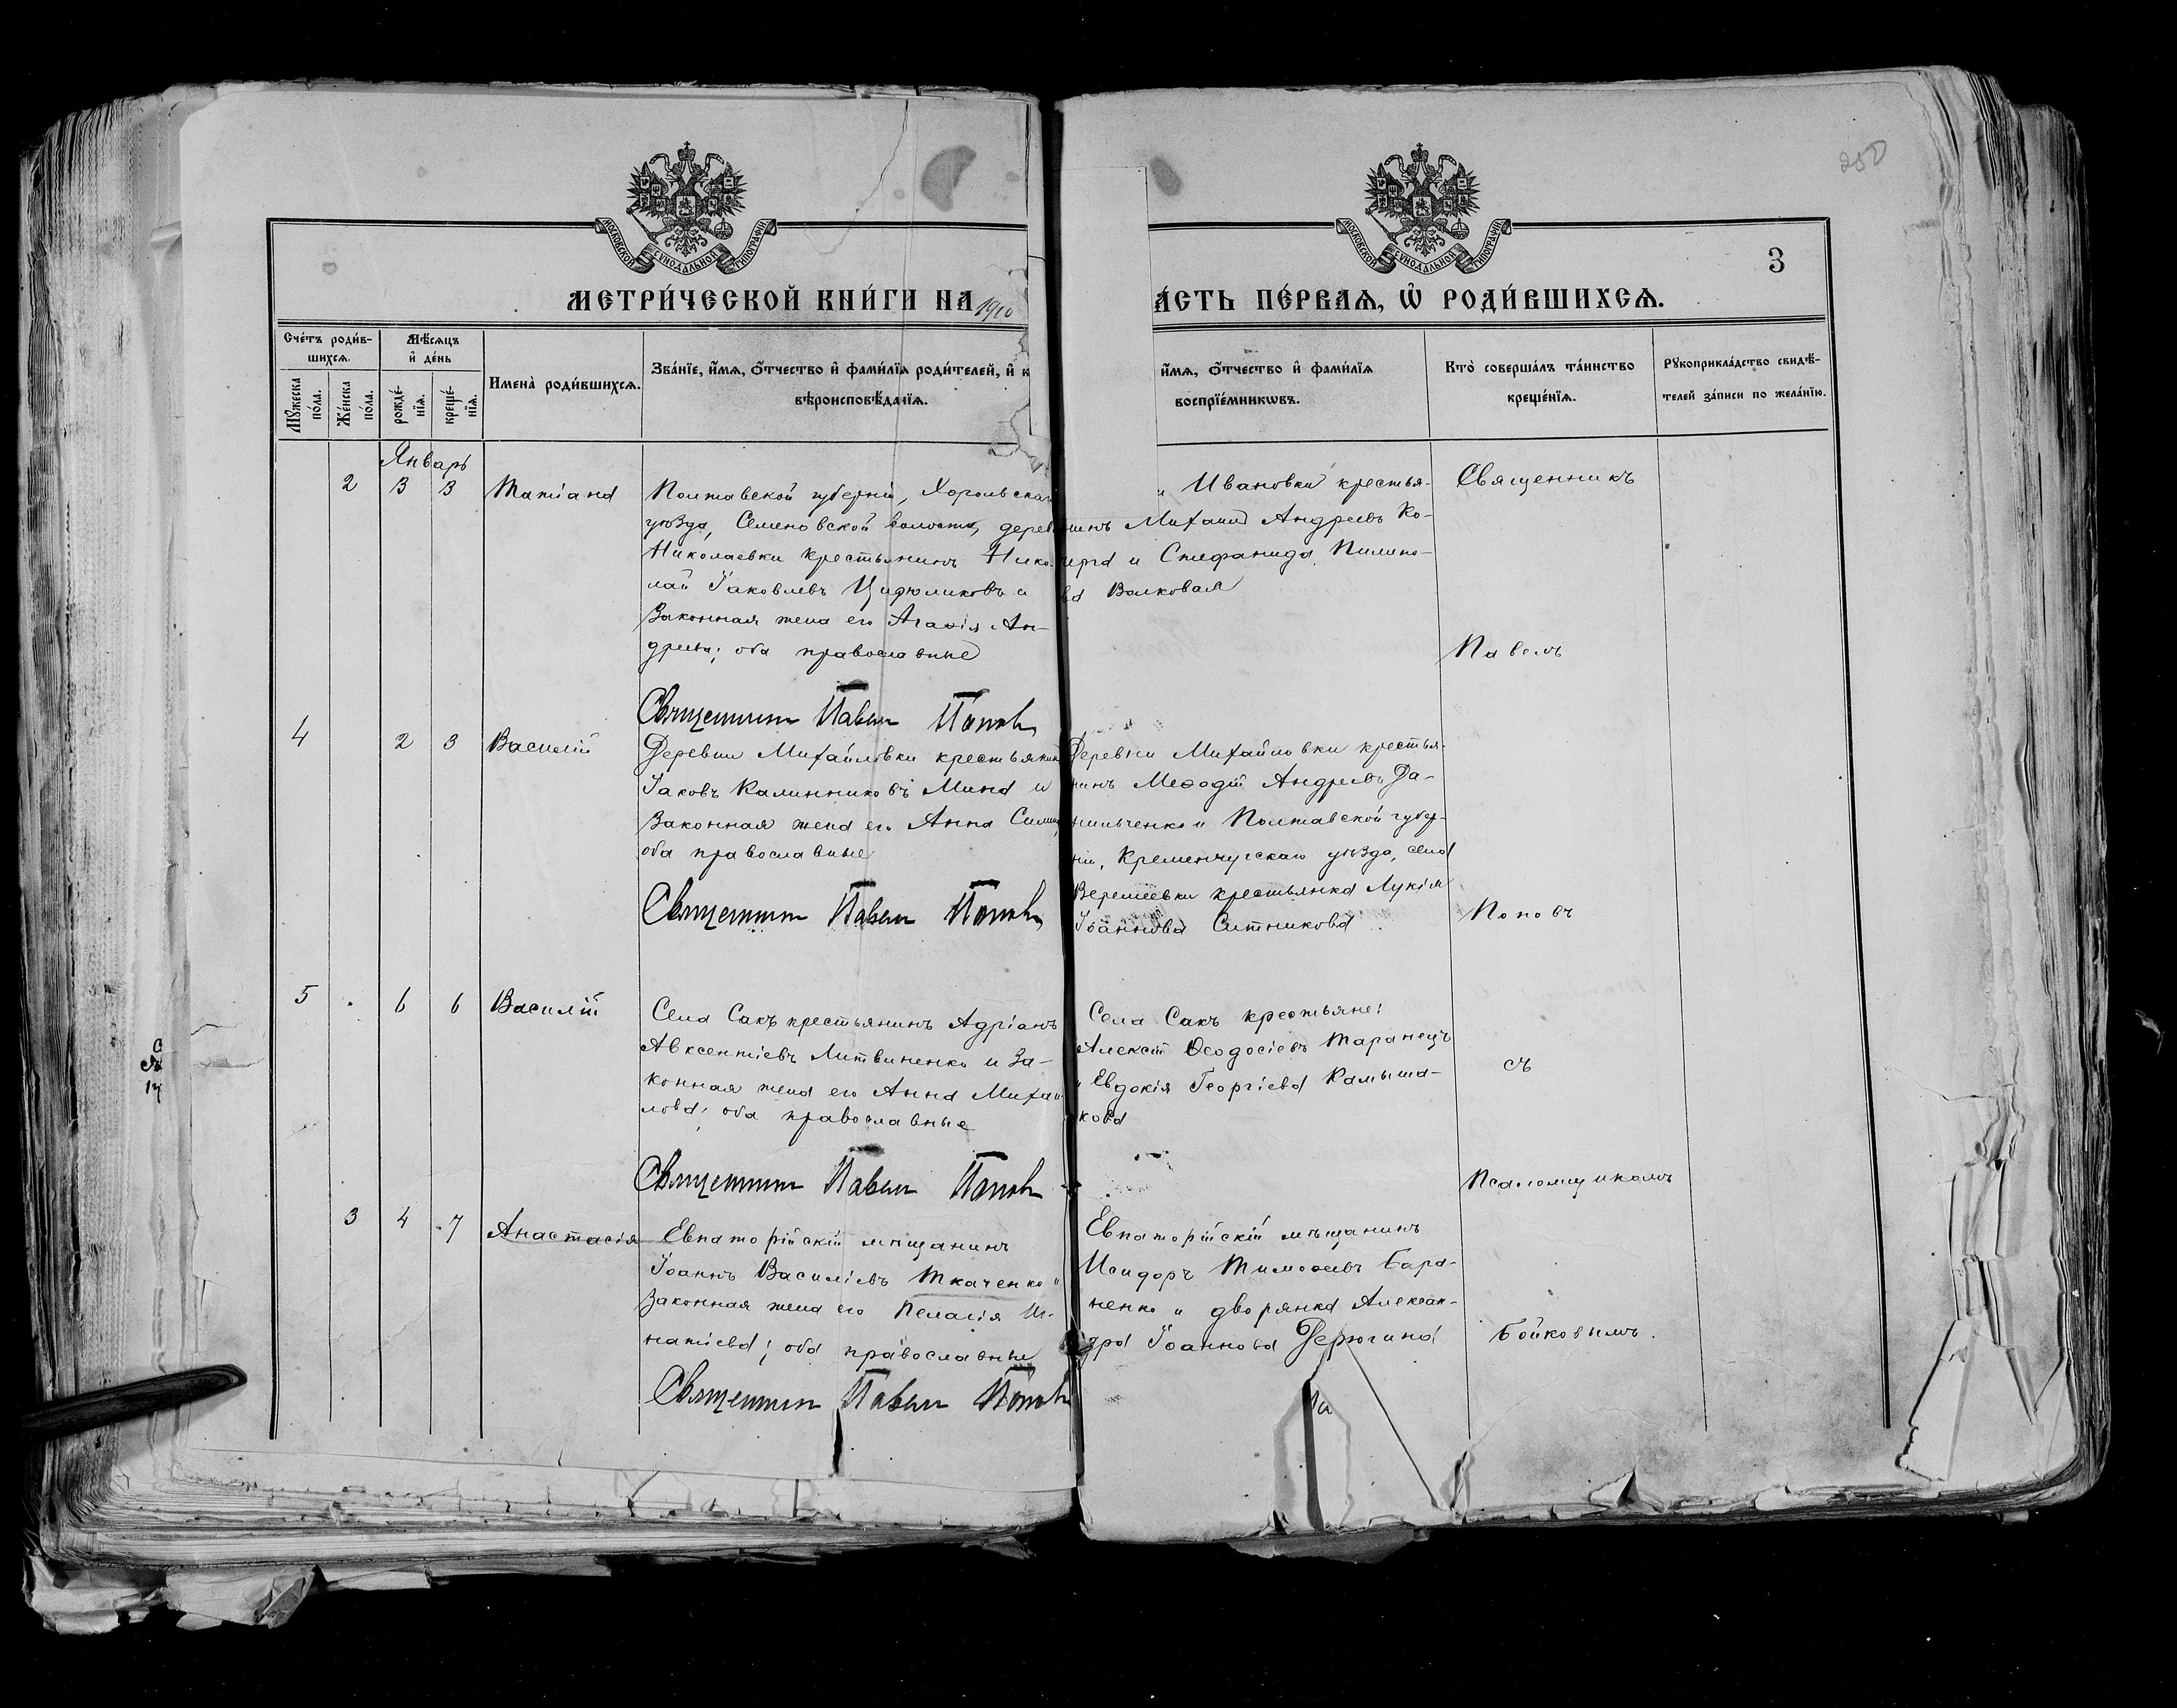 250
МОСКОВСКОЙ СѴНОДАЛЬНОЙ ТИПОГРАФІИ
МОСКОВСКОЙ СѴНОДАЛЬНОЙ ТИПОГРАФІИ
3
МЕТРИ́ЧЕСКОЙ КНИ́ГИ НА 1910
А́СТЬ ПЕ́РВАѦ, Ѽ РОДИ́ВШИХСѦ.
Сче́тъ роди́в-
шихсѧ.
Мꙋ́жеска по́ла.
Же́нска по́ла.
Мѣ́сѧцъ
и҆ де́нь
рожде́-
нїѧ.
креще́-
нїѧ.
Имена̀ роди́вшихсѧ.
Зва́нїе, и҆́мѧ, о҆́тчество и҆ фами́лїѧ роди́телей, и҆ к
вѣроисповѣ́данїѧ.
и҆́мѧ, о҆́тчество и҆ фами́лїѧ
воспрїе́мникѡвъ.
Кто̀ соверша́лъ та́инство
креще́нїѧ.
Рꙋкоприкла́дство свидѣ́-
телей за́писи по жела́нїю.
Январь
2 3 3 Татіана
Полтавской губерніи, Хорольскаго
уѣзда, Семеновской волости, дерев
Николаевки крестьянинъ Нико-
лай Іаковлевъ и
Законная жена его Агаѳія Ан-
дреева; оба православные
Священникъ Павелъ Поповъ
и Ивановки крестья-
нинъ Михаилъ Андреевъ Ко-
и Стефанида Пилипо-
ва Волковая
Священникъ
Павелъ
4 2 3 Василій
Деревни Михайловки крестьянинъ
Іаковъ Калинниковъ Мина и
Законная жена его Анна
оба православные
Священникъ Павелъ Поповъ
Деревни Михайловки крестья-
нинъ Меѳодій Андреевъ Да-
нильченко и Полтавской губер-
ніи, Кременчугскаго уѣзда, села
Веремеевки крестьянка Лукія
Іоаннова Ситникова
Поповъ
5 6 6 Василій
Села Сакъ крестьянинъ Адріанъ
Авксентіевъ Литвиненко и За-
конная жена его Анна Михаи
лова; оба православные
Священникъ Павелъ Поповъ
Села Сакъ крестьяне:
Алексій Ѳеодосіевъ Таранецъ
и Евдокія Георгіева Камыша-
кова
съ
Псаломщикомъ
3 4 7 Анастасія
Евпаторійскій мѣщанинъ
Іоаннъ Василіевъ Ткаченко и
Законная жена его Пелагія Иг-
натіева; оба православные
Священникъ Павелъ Поповъ
Евпаторійскій мѣщанинъ
Исидоръ Тимоѳеевъ Бара-
ненко и дворянка Алексан-
дра Іоаннова Дерюгина
Бойковымъ.